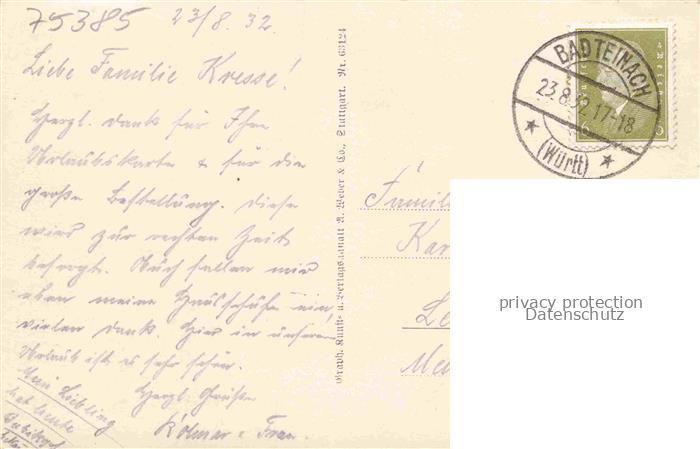 75385 23/8. 32.
Liebe Familie Kresse!
Herzl. Dank für Ihre
Urlaubskarte & für die
große Bestellung. Diese
wird zur rechten Zeit
besorgt. Auch fallen mir
eben meine Hausschuhe ein,
vielen Dank. Hier in unserem
Urlaub ist es sehr schön.
Herzl. Grüße
Kolmar u. Frau
Mein Liebling
hat heute
Graph. Kunst- u. Verlagsanstalt A. Weber & Co., Stuttgart. Nr. 63124
BAD TEINACH
23.8.32.17-18
(Württ)
Familie
Kar
Le
privacy protection
Datenschutz